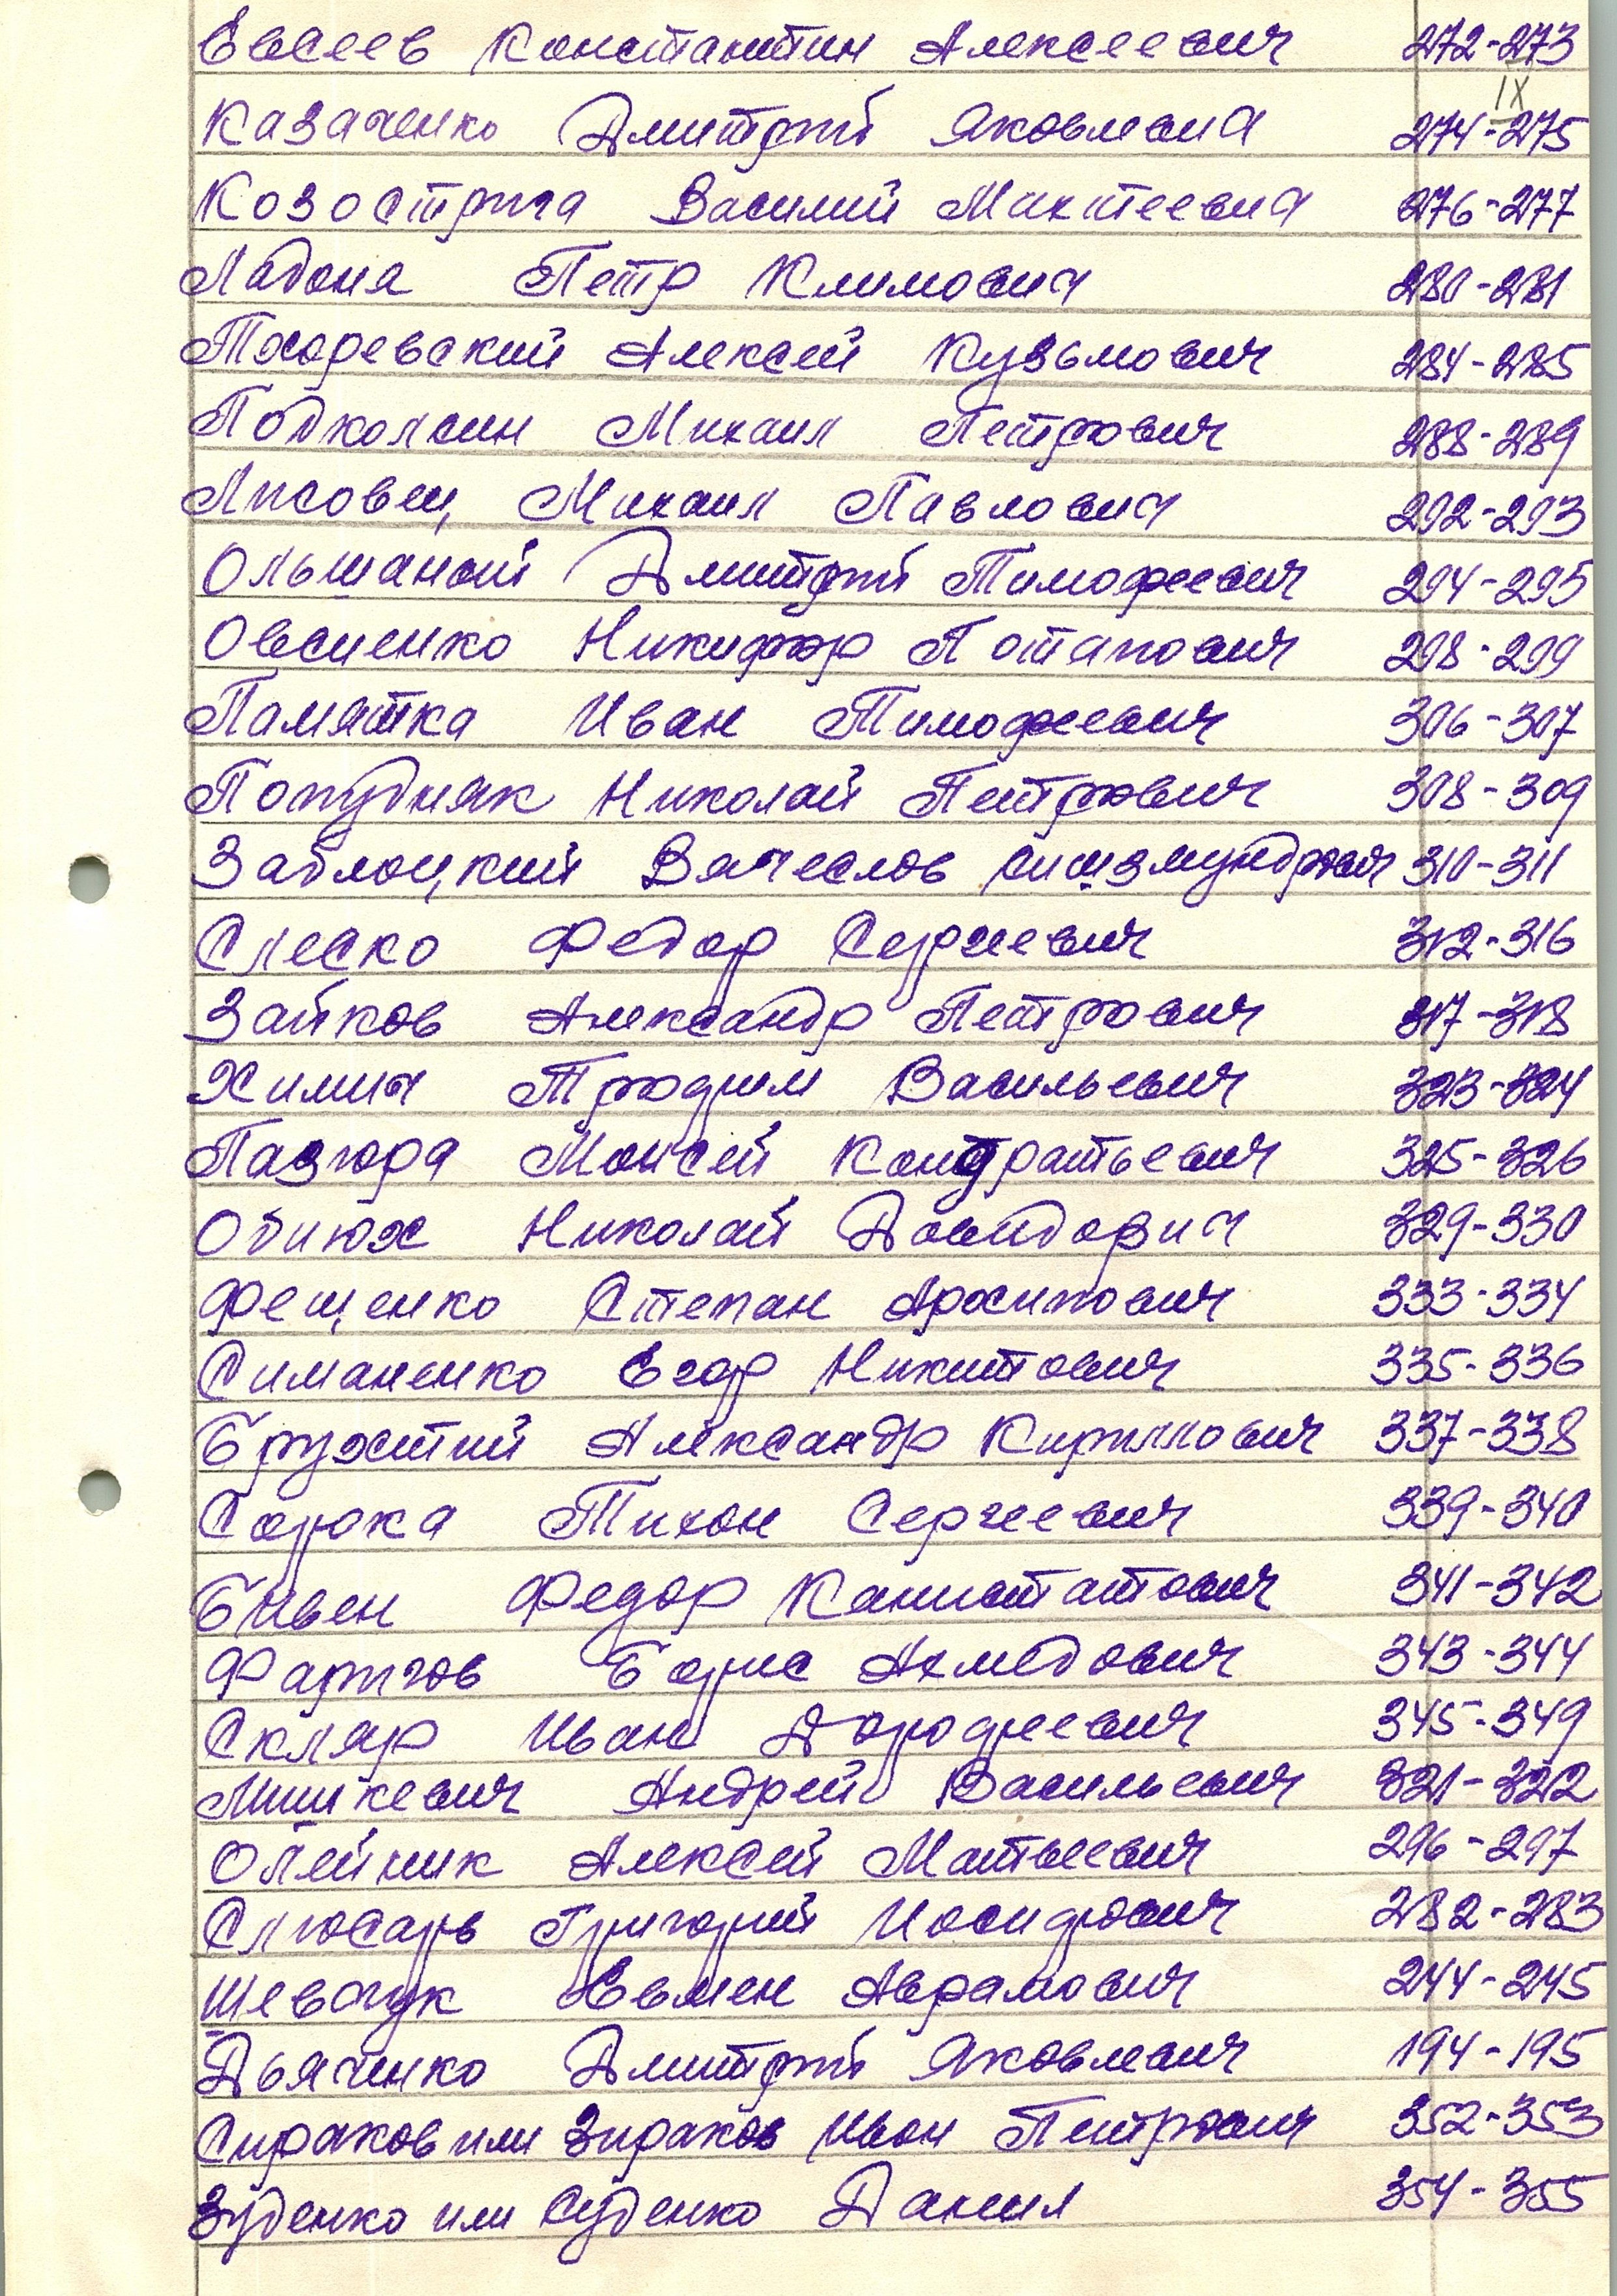 Евсеев Константин Алексеевич 272-273
IX
Казаченко Дмитрий Яковлевич 274-275
Козострига Василий Махтеевич 276-277
Ладоня Петр Климович 280-281
Тхоревский Алексей Кузьмович 284-285
Подколсин Михаил Петрович 288-289
Лисовец Михаил Павлович 292-293
Ольшаный Дмитрий Тимофеевич 294-295
Овсиенко Никифор Потапович 298-299
Памятка Иван Тимофеевич 306-307
Попудняк Николай Петрович 308-309
Заблоцкий Вячеслов Сигизмундович 310-311
Слеско Федор Сергеевич 312-316
Зайков Александр Петрович 317-318
Химич Трофим Васильевич 323-324
Пазюра Моисей Кондратьевич 325-326
Обиюх Николай Давидович 329-330
Фещенко Степан Архипович 333-334
Симаненко Егор Никитович 335-336
Брухитий Александр Кириллович 337-338
Сорока Тихон Сергеевич 339-340
Бивен Федор 341-342
Фаригов Борис Ахмедович 343-344
Скляр Иван Дорофеевич 345-349
Мишкевич Андрей Васильевич 321-322
Олейник Алексей Матвеевич 296-297
Слюсарь Григорий Иосифович 282-283
Шевчук Евмен Аврамович 244-245
Дьяченко Дмитрий Яковлевич 194-195
Сираков или Зираков Иван Петрович 352-353
Зуденко или Суденко Данил 354-355